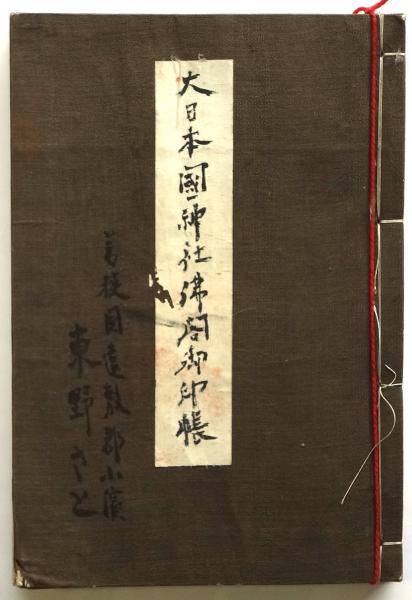 大日本國神社佛閣御印帳
若狭国遠敷郡小濱
東野さと